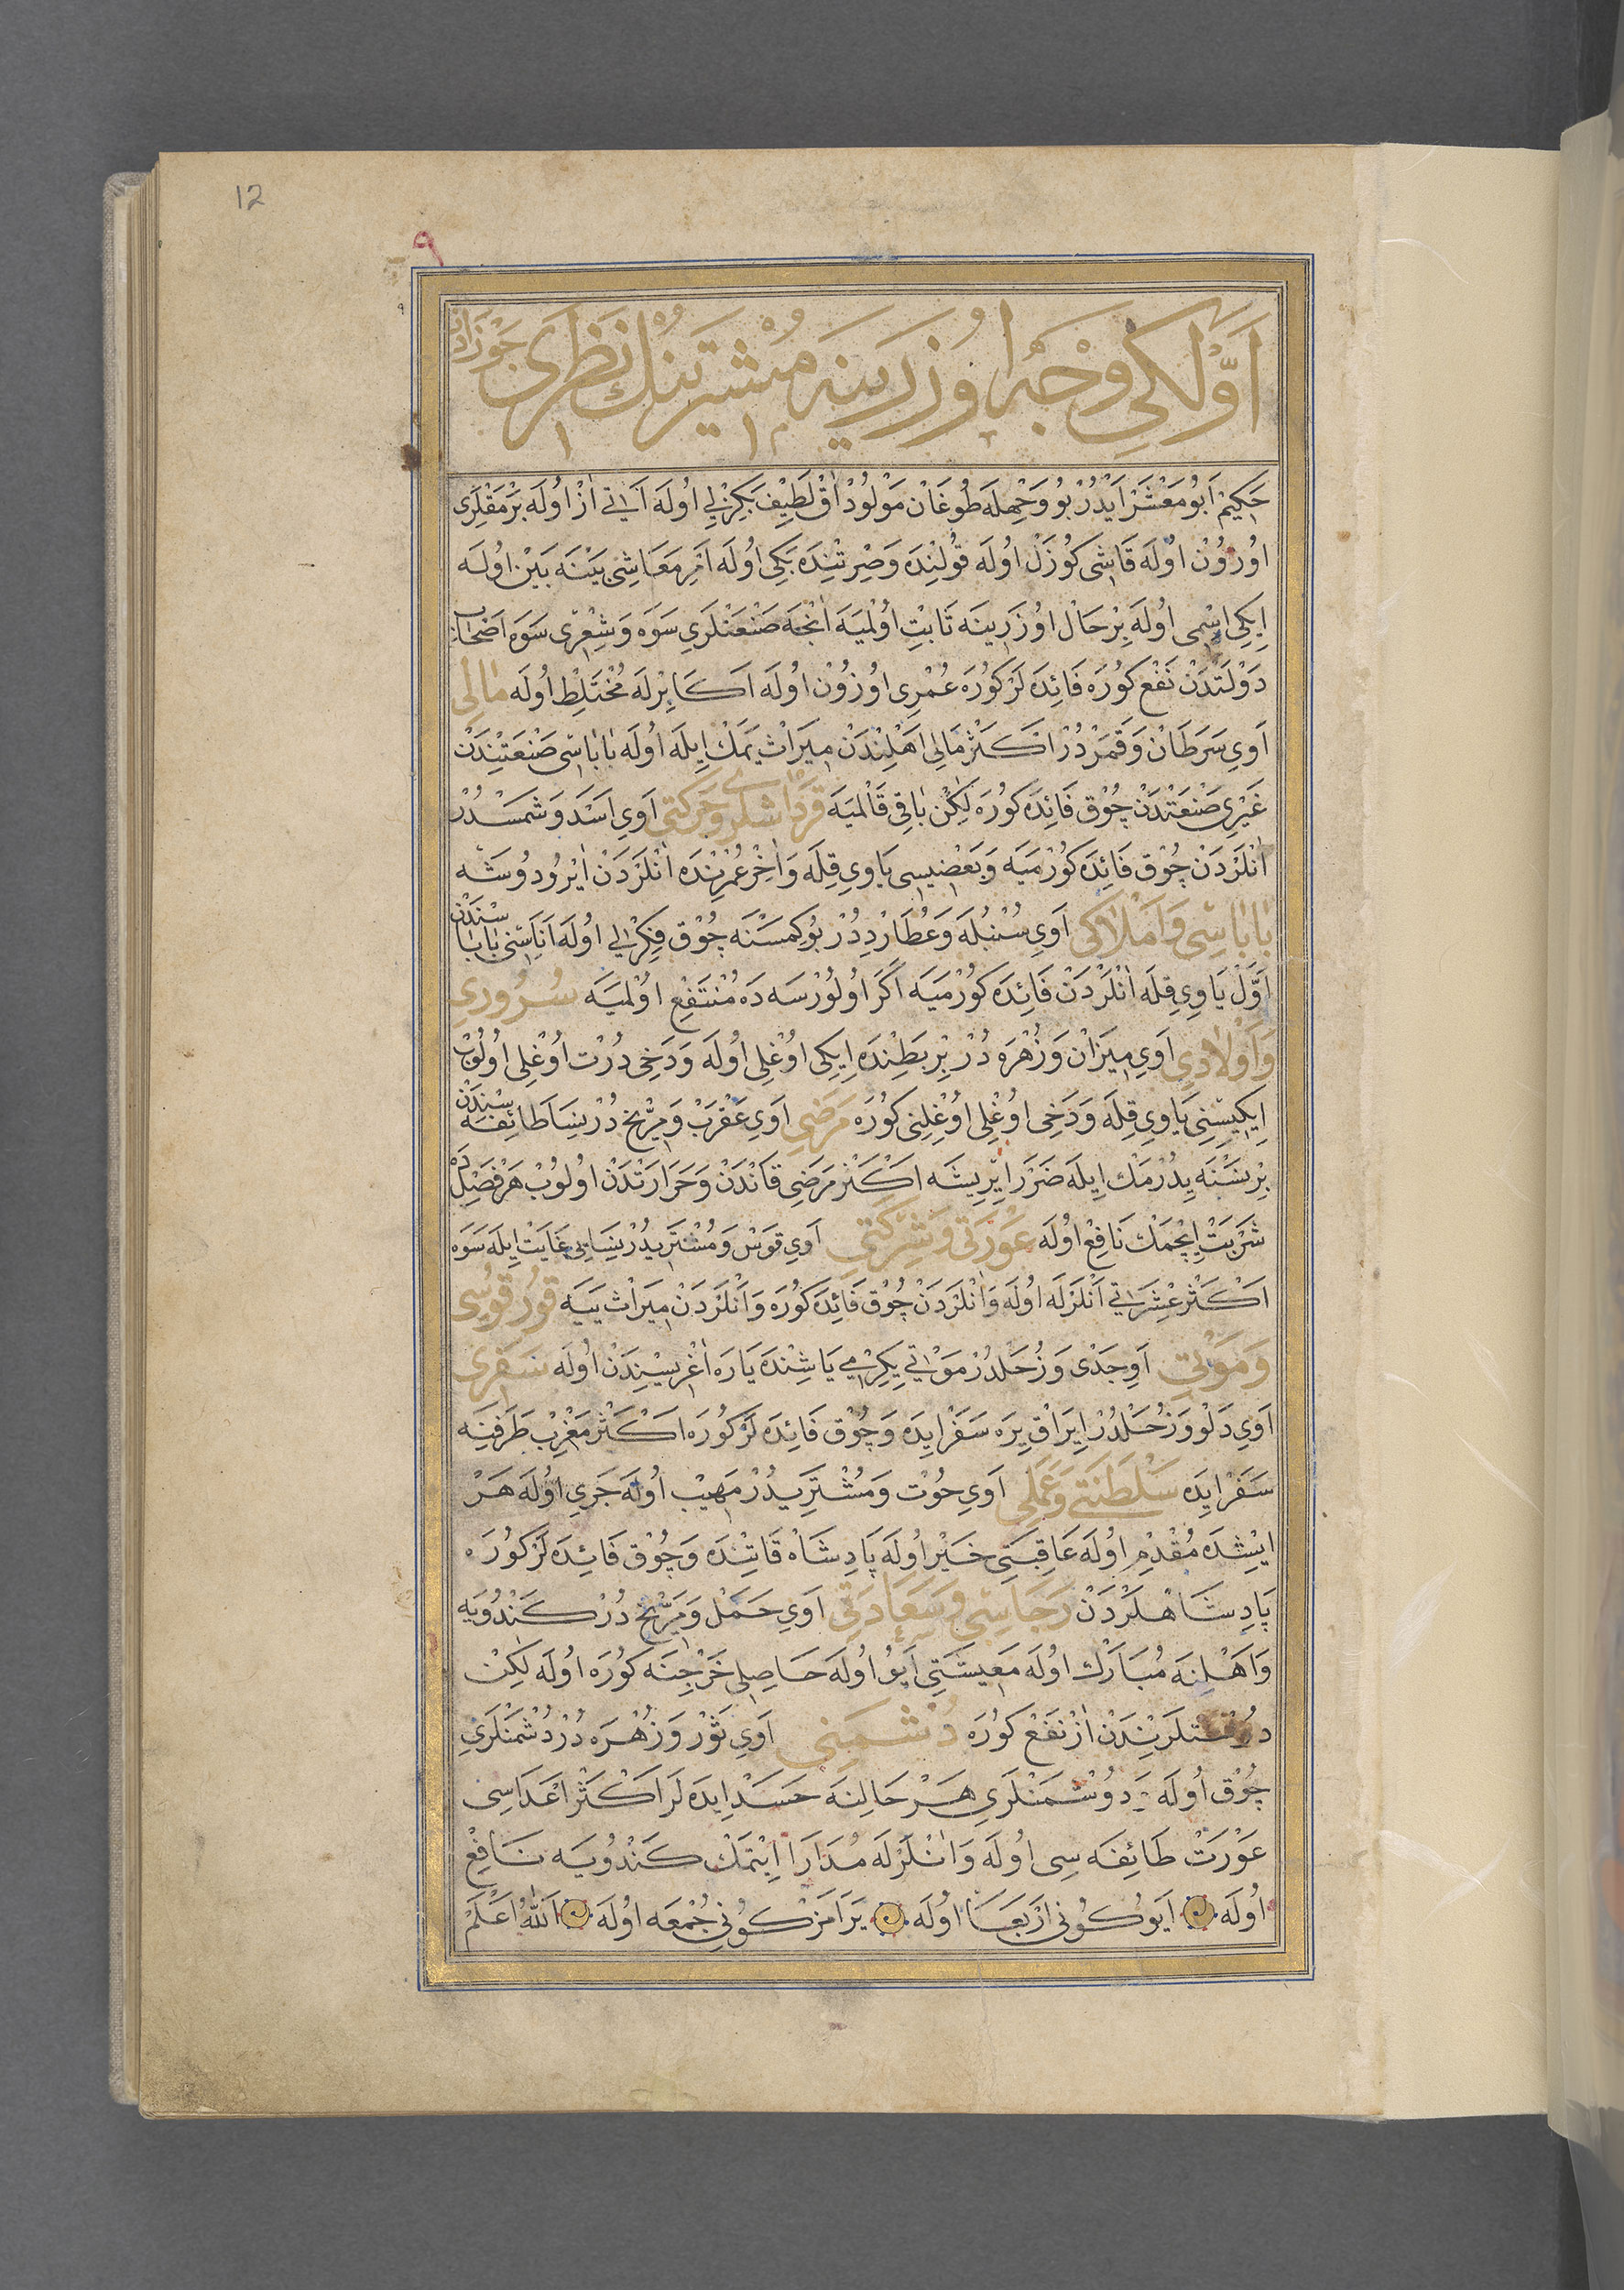 12
۹
اَوَّلْكِی وَجْه اُوزَرِينَه مُشْتَرِينُكْ نَظَرِی جَوْزَادُر
حَكِيمْ اَبُو مَعْشَرْ اَيْدُرْ بُو وَجْهِلَه طُوغَانْ مَوْلُودْ اٰقْ لَطِيفْ بَكِزْلِی اُولَه اَنٖی اٰزْ اُولَه بَرْمَقْلَرِی
اُوزُونْ اُولَه قَاشِی كُوزَلْ اُولَه قُولِنْدَه وَصِرْتِنْدَه بَكِی اُولَه اَمْرِ مَعَاشِی بَيْنَه بَيْنْ اُولَه
اِيكِی اِسْمِی اُولَه بِرْ حَالْ اُوزَرِينَه ثَابِتْ اُولْمَيَه اِنْجَه صَنْعَتْلَرِی سَوَه وَشِعْرِی سَوَه اَصْحَابِ
دَوْلَتْدَنْ نَفْعْ كُورَه فَائِدَه لَرْ كُورَه عُمْرِی اُوزُونْ اُولَه اَكَابِرْلَه مُخْتَلِطْ اُولَه مَالِی
اَوِی سَرَطَانْ وَقَمَرْدُرْ اَكْثَرْ مَالِی اَهْلِنْدَنْ مِيرَاثْ يَمَكْ اِيلَه اُولَه بَابَاسِی صَنْعَتِنْدَنْ
غَيْرِی صَنْعَتْدَنْ چُوْقْ فَائِدَه كُورَه لٰكِنْ بَاقِی قَالْمَيَه قَرْدَاشْلَرِی وَحَرَكَتِی اَوِی اَسَدْ وَشَمْسْدُرْ
اَنْلَرْدَنْ چُوْقْ فَائِدَه كُورْمَيَه وَبَعْضِيسِی يَاوِی قِلَه وَاٰخِرْ عُمْرِنْدَه اَنْلَرْدَنْ اَيْرُو دُوشَه
بَابَاسِی وَاَمْلَاكِی اَوِی سُنْبُلَه وَعُطَارِدْدُرْ بُو كِمَسْنَه چُوْقْ فِكِرْلِی اُولَه اَنَاسِنِی بَابَاسِنْدَنْ
اَوَّلْ يَاوِی قِلَه اَنْلَرْدَنْ فَائِدَه كُورْمَيَه اَكَرْ اُولُورْسَه دَه مُنْتَفِعْ اُولْمَيَه سُرُورِی
وَاَوْلَادِی اَوِی مِيزَانْ وَزُهْرَه دُرْ بِرْ بَطِنْدَه اِيكِی اُوغْلِی اُولَه وَدَخِی دُرْتْ اُوغْلِی اُولُوبْ
اِيكِيسِنِی يَاوِی قِلَه وَدَخِی اُوغْلِی اُوغْلِنِی كُورَه مَرَضِی اَوِی عَقْرَبْ وَمِرِّيخْ دُرْ نِسَا طَائِفَه سِنْدَنْ
بِرْ نَسْنَه يِدُرْمَكْ اِيلَه ضَرَرْ اِيرِيشَه اَكْثَرْ مَرَضِی قَانْدَنْ وَحَرَارَتْدَنْ اُولُوبْ هَرْ فَصِلْدَه
شَرْبَتْ اِيچْمَكْ نَافِعْ اُولَه عَوْرَتِی وَشِرْكَتِی اَوِی قَوْسْ وَمُشْتَرِيدُرْ نِسَايِی غَايَتْ اِيلَه سَوَه
اَكْثَرْ عِشْرَتِی اَنْلَرْلَه اُولَه وَاَنْلَرْدَنْ چُوْقْ فَائِدَه كُورَه وَاَنْلَرْدَنْ مِيرَاثْ يِيَه قُورْقُوسِی
وَمَوْتِی اَوِی جَدْی وَزُحَلْدُرْ مَوْتِی يِكِرْمِی يَاشِنْدَه يَارَه اٰغْرِيسِنْدَنْ اُولَه سَفَرِی
اَوِی دَلْو وَزُحَلْدُرْ اِيرَاقْ يِرَه سَفَرْ ايدَه وَچُوْقْ فَائِدَه لَرْ كُورَه اَكْثَرْ مَغْرِبْ طَرَفِنَه
سَفَرْ ايدَه سَلْطَنَتِی وَعَمَلِی اَوِی حُوتْ وَمُشْتَرِيدُرْ مَهِيبْ اُولَه جَرِی اُولَه هَرْ
ايشْدَه مُقْدِمْ اُولَه عَاقِبَتِی خَيْرْ اُولَه پَادِشَاهْ قَاتِنْدَه وَچُوْقْ فَائِدَه لَرْ كُورَه
پَادِشَاهْلَرْدَنْ رَجَاسِی وَسَعَادَتِی اَوِی حَمَلْ وَمِرِّيخْ دُرْ كَنْدُويَه
وَاَهْلِنَه مُبَارَكْ اُولَه مَعِيشَتِی اَيُو اُولَه حَاصِلِی خَرْجِنَه كُورَه اُولَه لٰكِنْ
دُوسْتلَرِنْدَنْ اٰزْ نَفْعْ كُورَه دُشْمَنِی اَوِی ثَوْرْ وَزُهْرَه دُرْ دُشْمَنْلَرِی
چُوْقْ اُولَه دُوشْمَنْلَرِی هَرْ حَالِنَه حَسَدْ ايدَه لَرْ اَكْثَرْ اَعْدَاسِی
عَوْرَتْ طَائِفَه سِی اُولَه وَاَنْلَرْلَه مُدَارَا اِيتْمَكْ كَنْدُويَه نَافِعْ
اُولَه اَيُو كُونِی اَرْبَعَا اُولَه يَرَامَزْ كُونِی جُمْعَه اُولَه اَللّٰهُ اَعْلَمْ